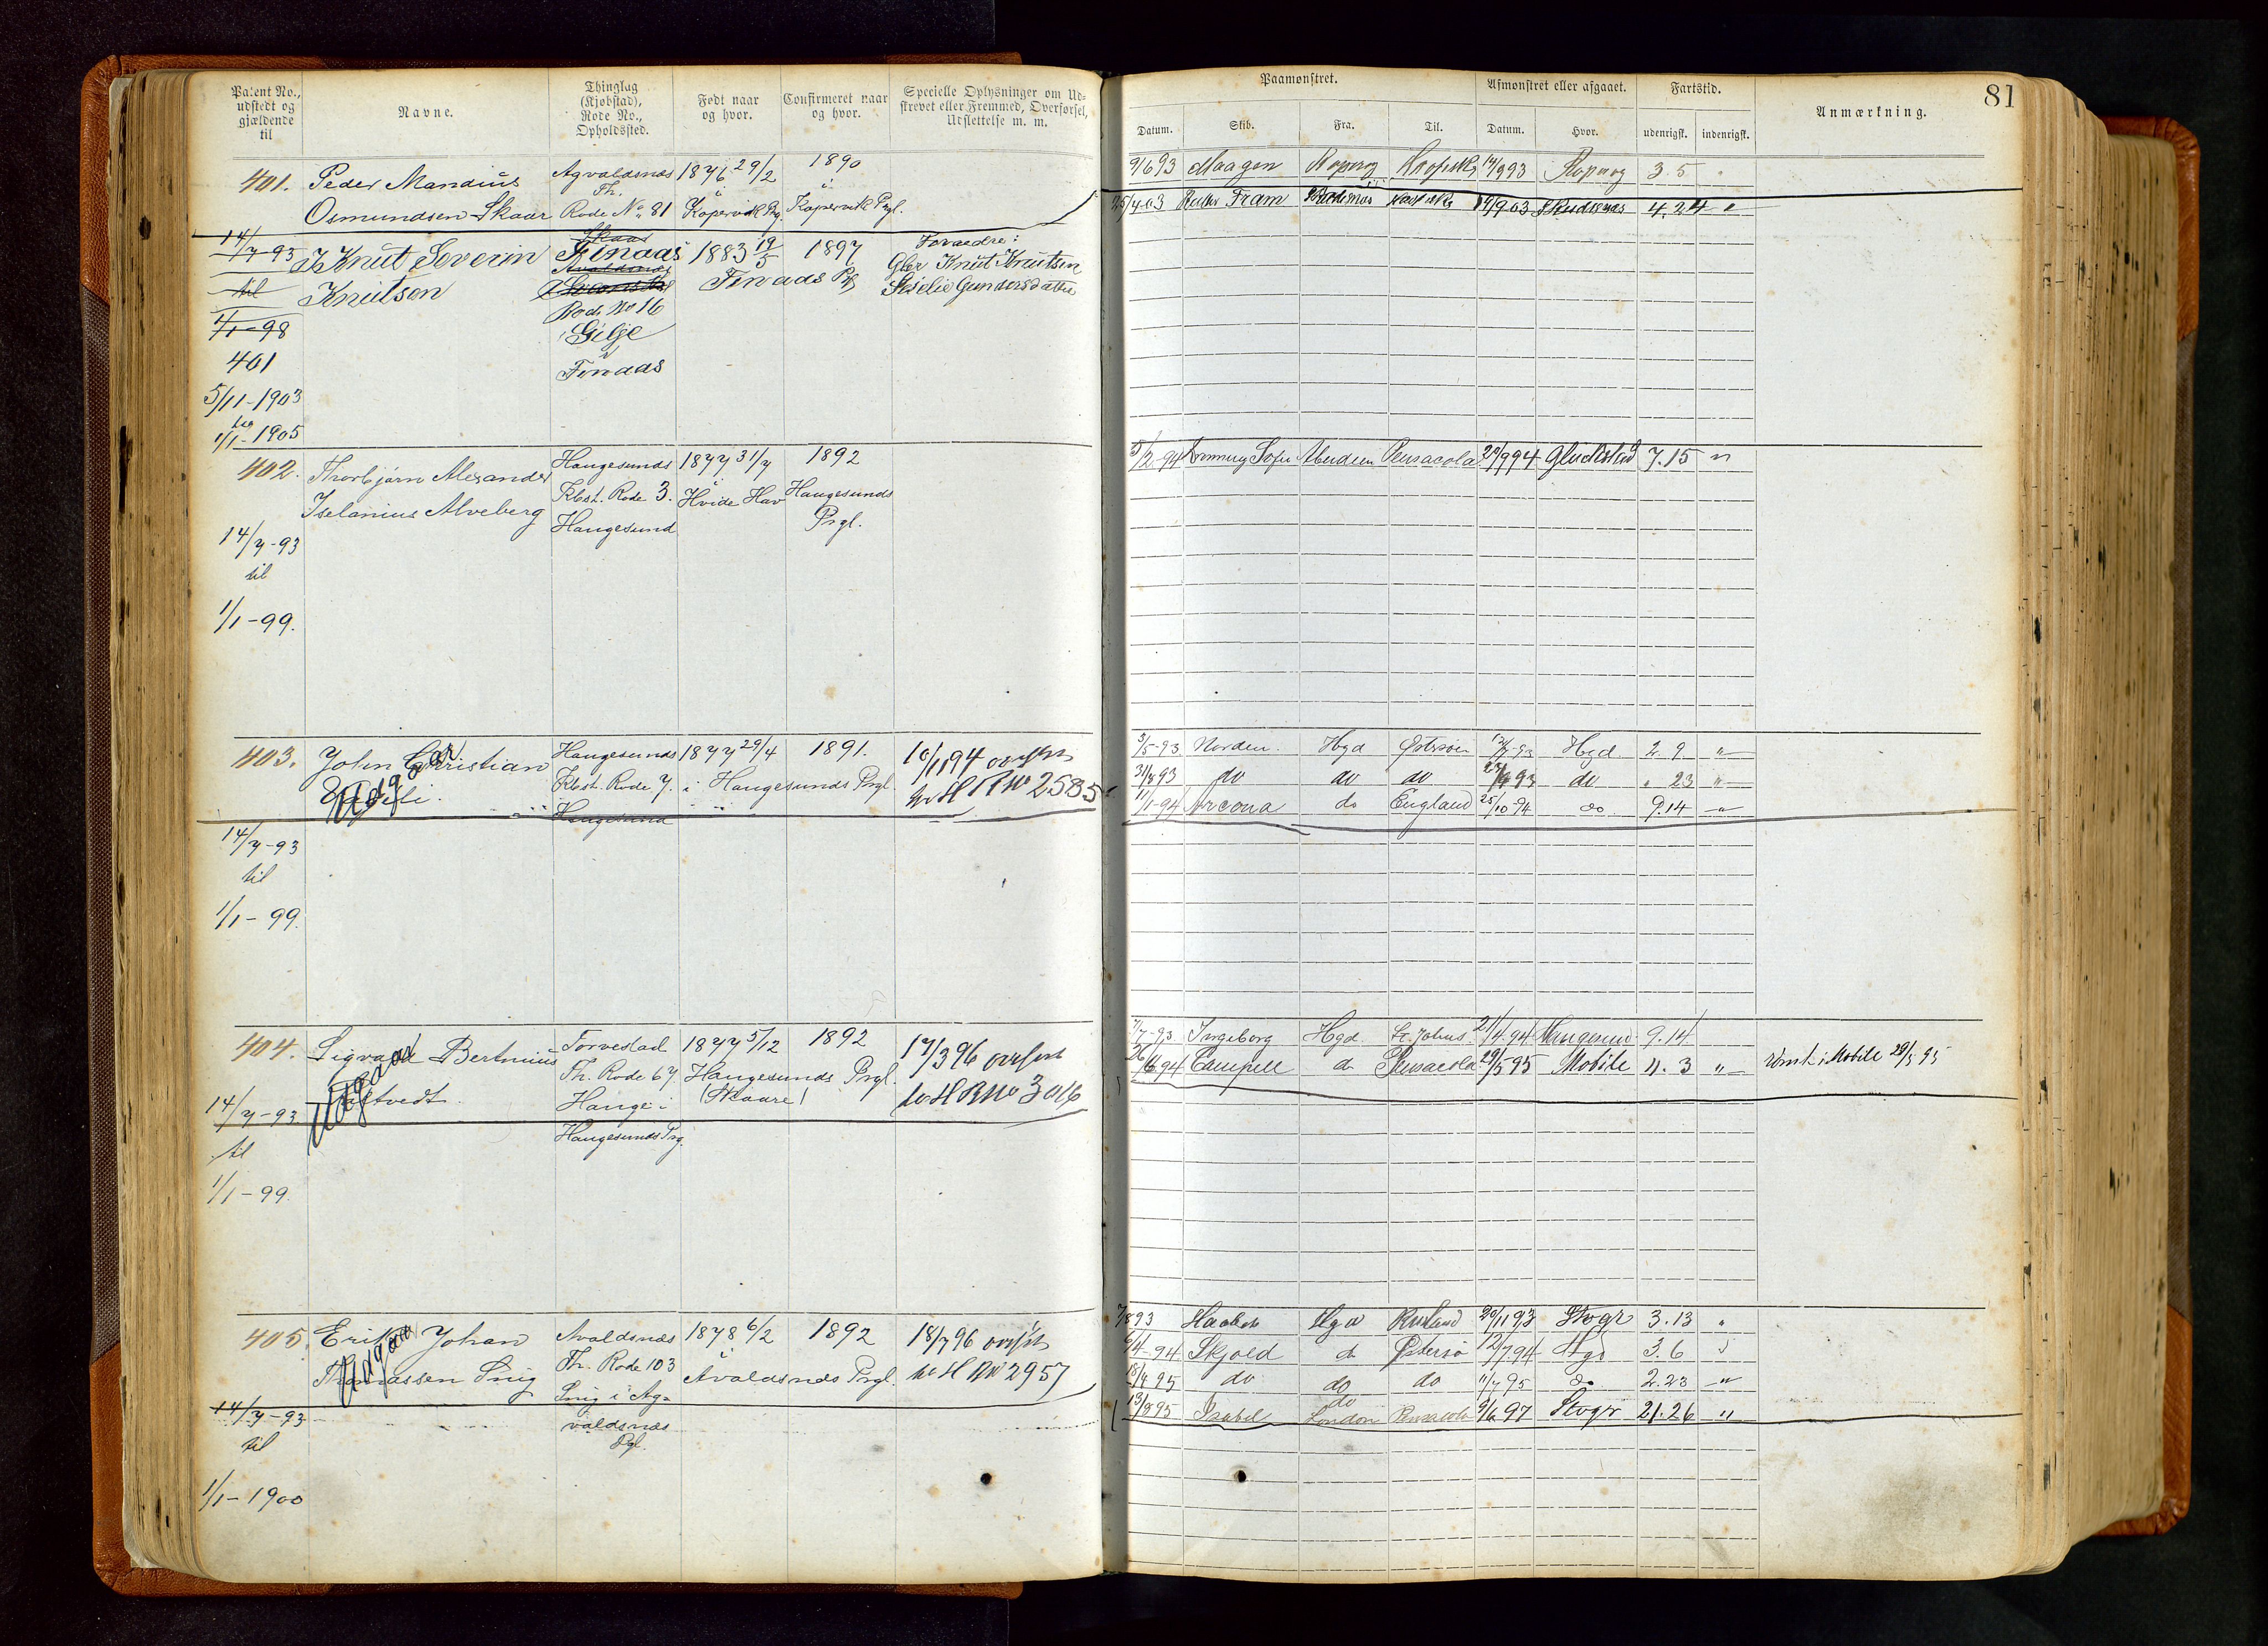 81
Patent No., udstedt og gjældende til
Navne.
Thinglag (Kjøbstad), Rode No., Opholdssted.
Født naar og hvor.
Confirmeret naar og hvor.
Specielle Oplysninger om Udskrevet eller Fremmed, Overførsel, Udslettelse m. m.
Paamønstret.
Afmønstret eller afgaaet.
Fartstid.
Anmærkning.
Datum. Skib. Fra. Til. Datum. Hvor. udenrigsk. indenrigsk.
401. Peder Mandius Agvaldsnæs 1876 29/2 1890
Th. i i
Osmundsen Skaar Rode No. 81 Kopervik Prg. Kopervik Prgl.
Skaar
14/7-93 Knut Severin Finaas 1883 19/5 1897 Forældre:
Avaldsnæs
til Knutsen Finaas Pg Gbr Knut Knutsen
Rode No 16 Gundersdatter
1/1-98 Gilje
401 i
Finaas
5/11-1903
til
1/1-1905
9/6 93 Maagen 14/9 93 3.5
25/4 03 Fram 19/9 03 Skudesnæs 4.24 "
402. Thorbjørn Alexander Haugesunds 1877 31/7 1892
Iselanius Alveberg Kbst. Rode 3. Hvide Hav Haugesunds
Haugesund Prgl.
14/7-93
til
1/1-99.
5/2-94 Dronning Sofie Aberdeen Pensacola 29/9 94 Gluckstad 7.15 "
403. John Christian Haugesunds 1877 29/4 1891. 10/11 94 overført
Udgaar
Kbst. Rode 7. i Haugesunds Prgl. til H R No 2585
Haugesund
14/7-93
til
1/1-99.
3/5-93 Norden. Hgd Østersøen 12/7-93 Hgd. 2.9 "
31/8 93 do do do 23/9 93 do " 23 "
11/1-94 Arcona do England 25/10-94 do 9.14 "
404. Sigvald Bertinius Torvestad 1877 5/12 1892 17/3 96 overført
Udgaar
Th. Rode 67 Haugesunds Prgl. til H R No 3016
14/7-93 Hauge i (Skaare)
til Haugesunds Prg.
1/1-99.
7/7-93 Ingeborg Hgd. St. Johns 21/4.94 Haugesund 9.14
26/6 94 Campell do Pensacola 29/5 95 Mobile 11.3 " Rømt i Mobile 29/5 95
405. Erik Johan Avaldsnæs 1878 6/2 1892 18/7 96 overført
Udgaar
Thomassen Snig Th. Rode 103 i Avaldsnæs Prgl. til H R No 2957
Snig i Ag-
14/7-93 valdsnæs
til Pgl.
1/1-1900
7/8 93 Haabet Hgd Rusland 29/11 93 Stvgr 3.13 "
6/4-94 Skjold do Østersø 12/7.94 Hgd 3.6 "
18/4 95 do do do 11/7 95 do 2.23 "
do
13/8 95 Isabel London Pensacola 9/6 97 Stvgr 21.26 "